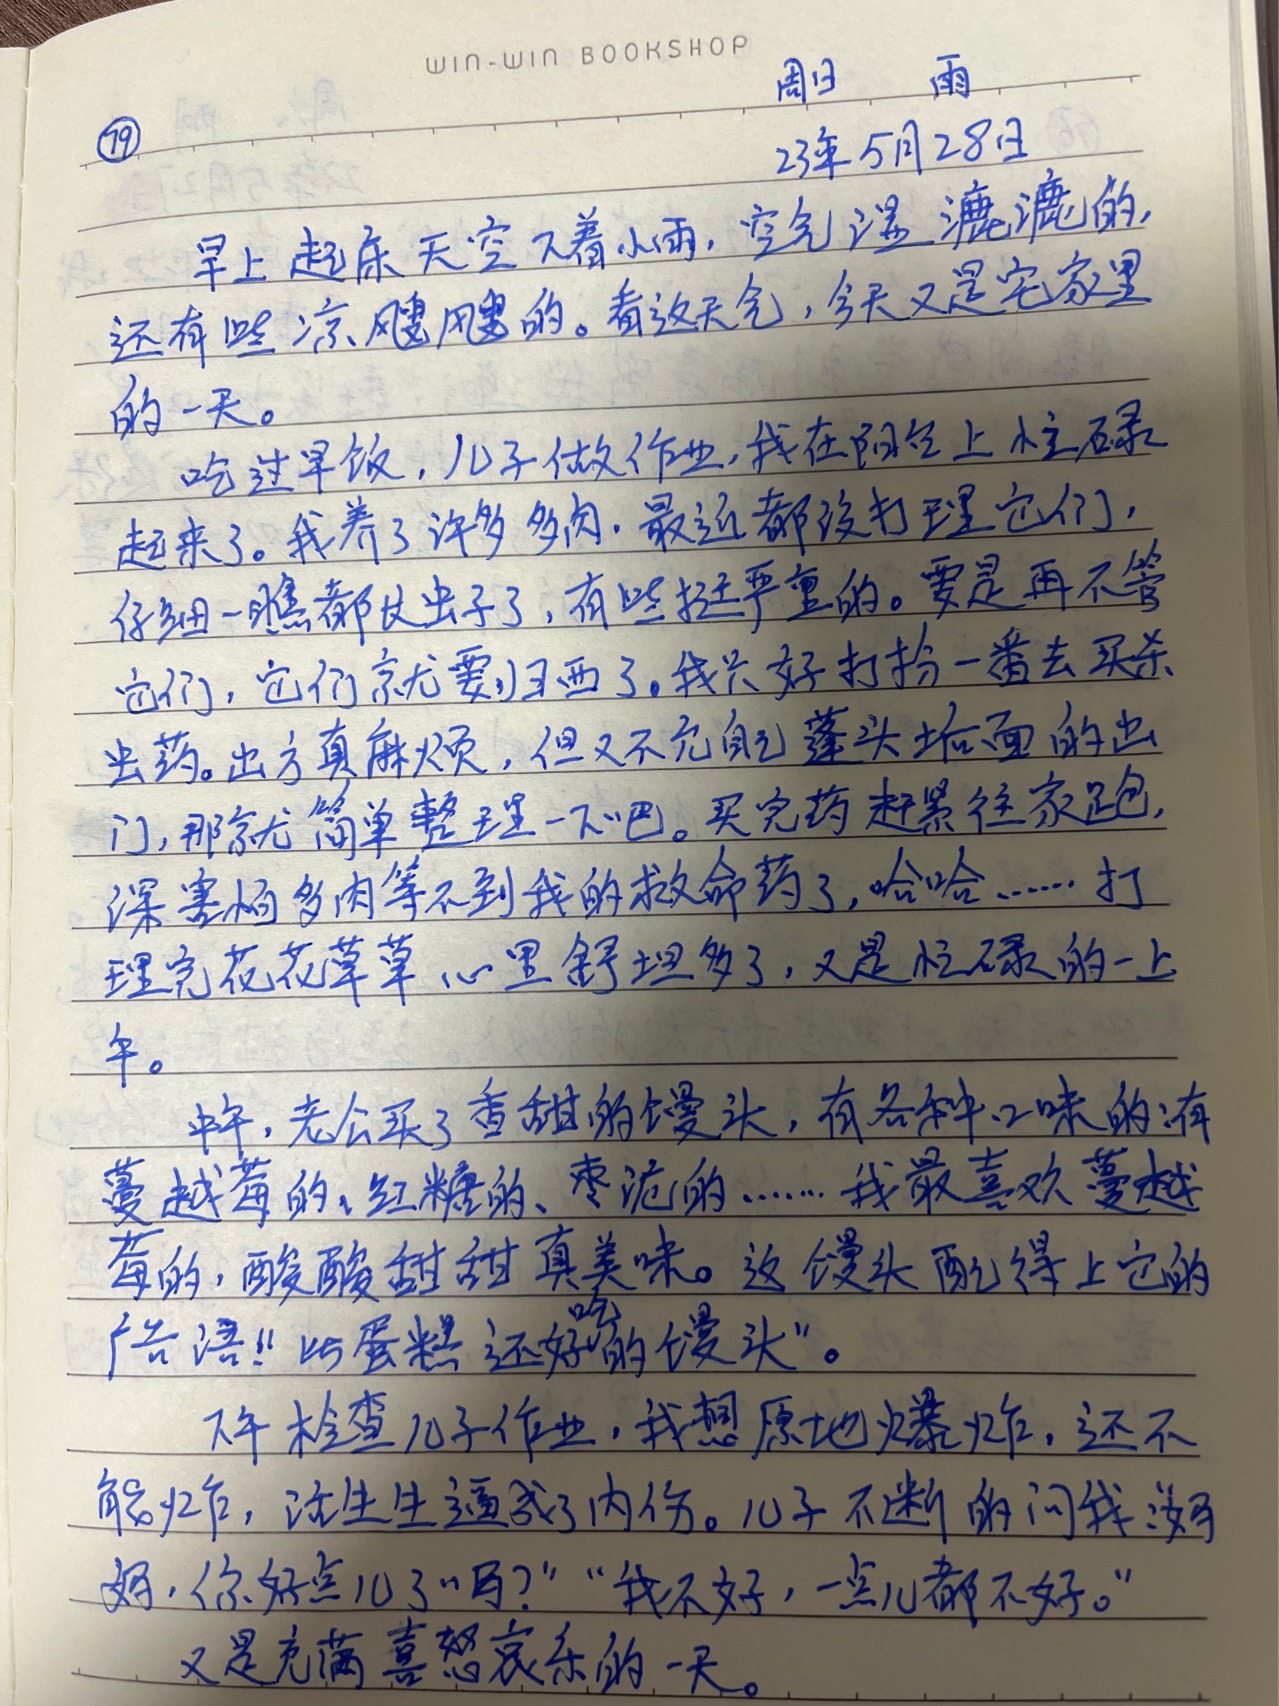 WIN-WIN BOOKSHOP
周日 雨
79
23年5月28日
早上起床天空下着小雨，空气湿漉漉的，
还有些凉飕飕的。看这天气，今天又是宅家里
的一天。
吃过早饭，儿子做作业，我在阳台上忙碌
起来了。我养了许多多肉，最近都没打理它们，
仔细一瞧都长虫子了，有些挺严重的。要是再不管
它们，它们就要归西了。我只好打扮一番去买杀
虫药。出方真麻烦，但又不允自己蓬头垢面的出
门，那就简单整理一下吧。买完药赶紧往家跑，
深害怕多肉等不到我的救命药了，哈哈……打
理完花花草草心里舒坦多了，又是忙碌的一上
午。
中午，老公买了香甜的馒头，有各种口味的：有
蔓越莓的、红糖的、枣泥的……我最喜欢蔓越
莓的，酸酸甜甜真美味。这馒头配得上它的
广告语："比蛋糕还好吃的馒头"。
下午检查儿子作业，我想原地爆炸，还不
能炸，活生生逼成了内伤。儿子不断的问我"妈
妈，你好点儿了吗？""我不好，一点儿都不好。"
又是充满喜怒哀乐的一天。